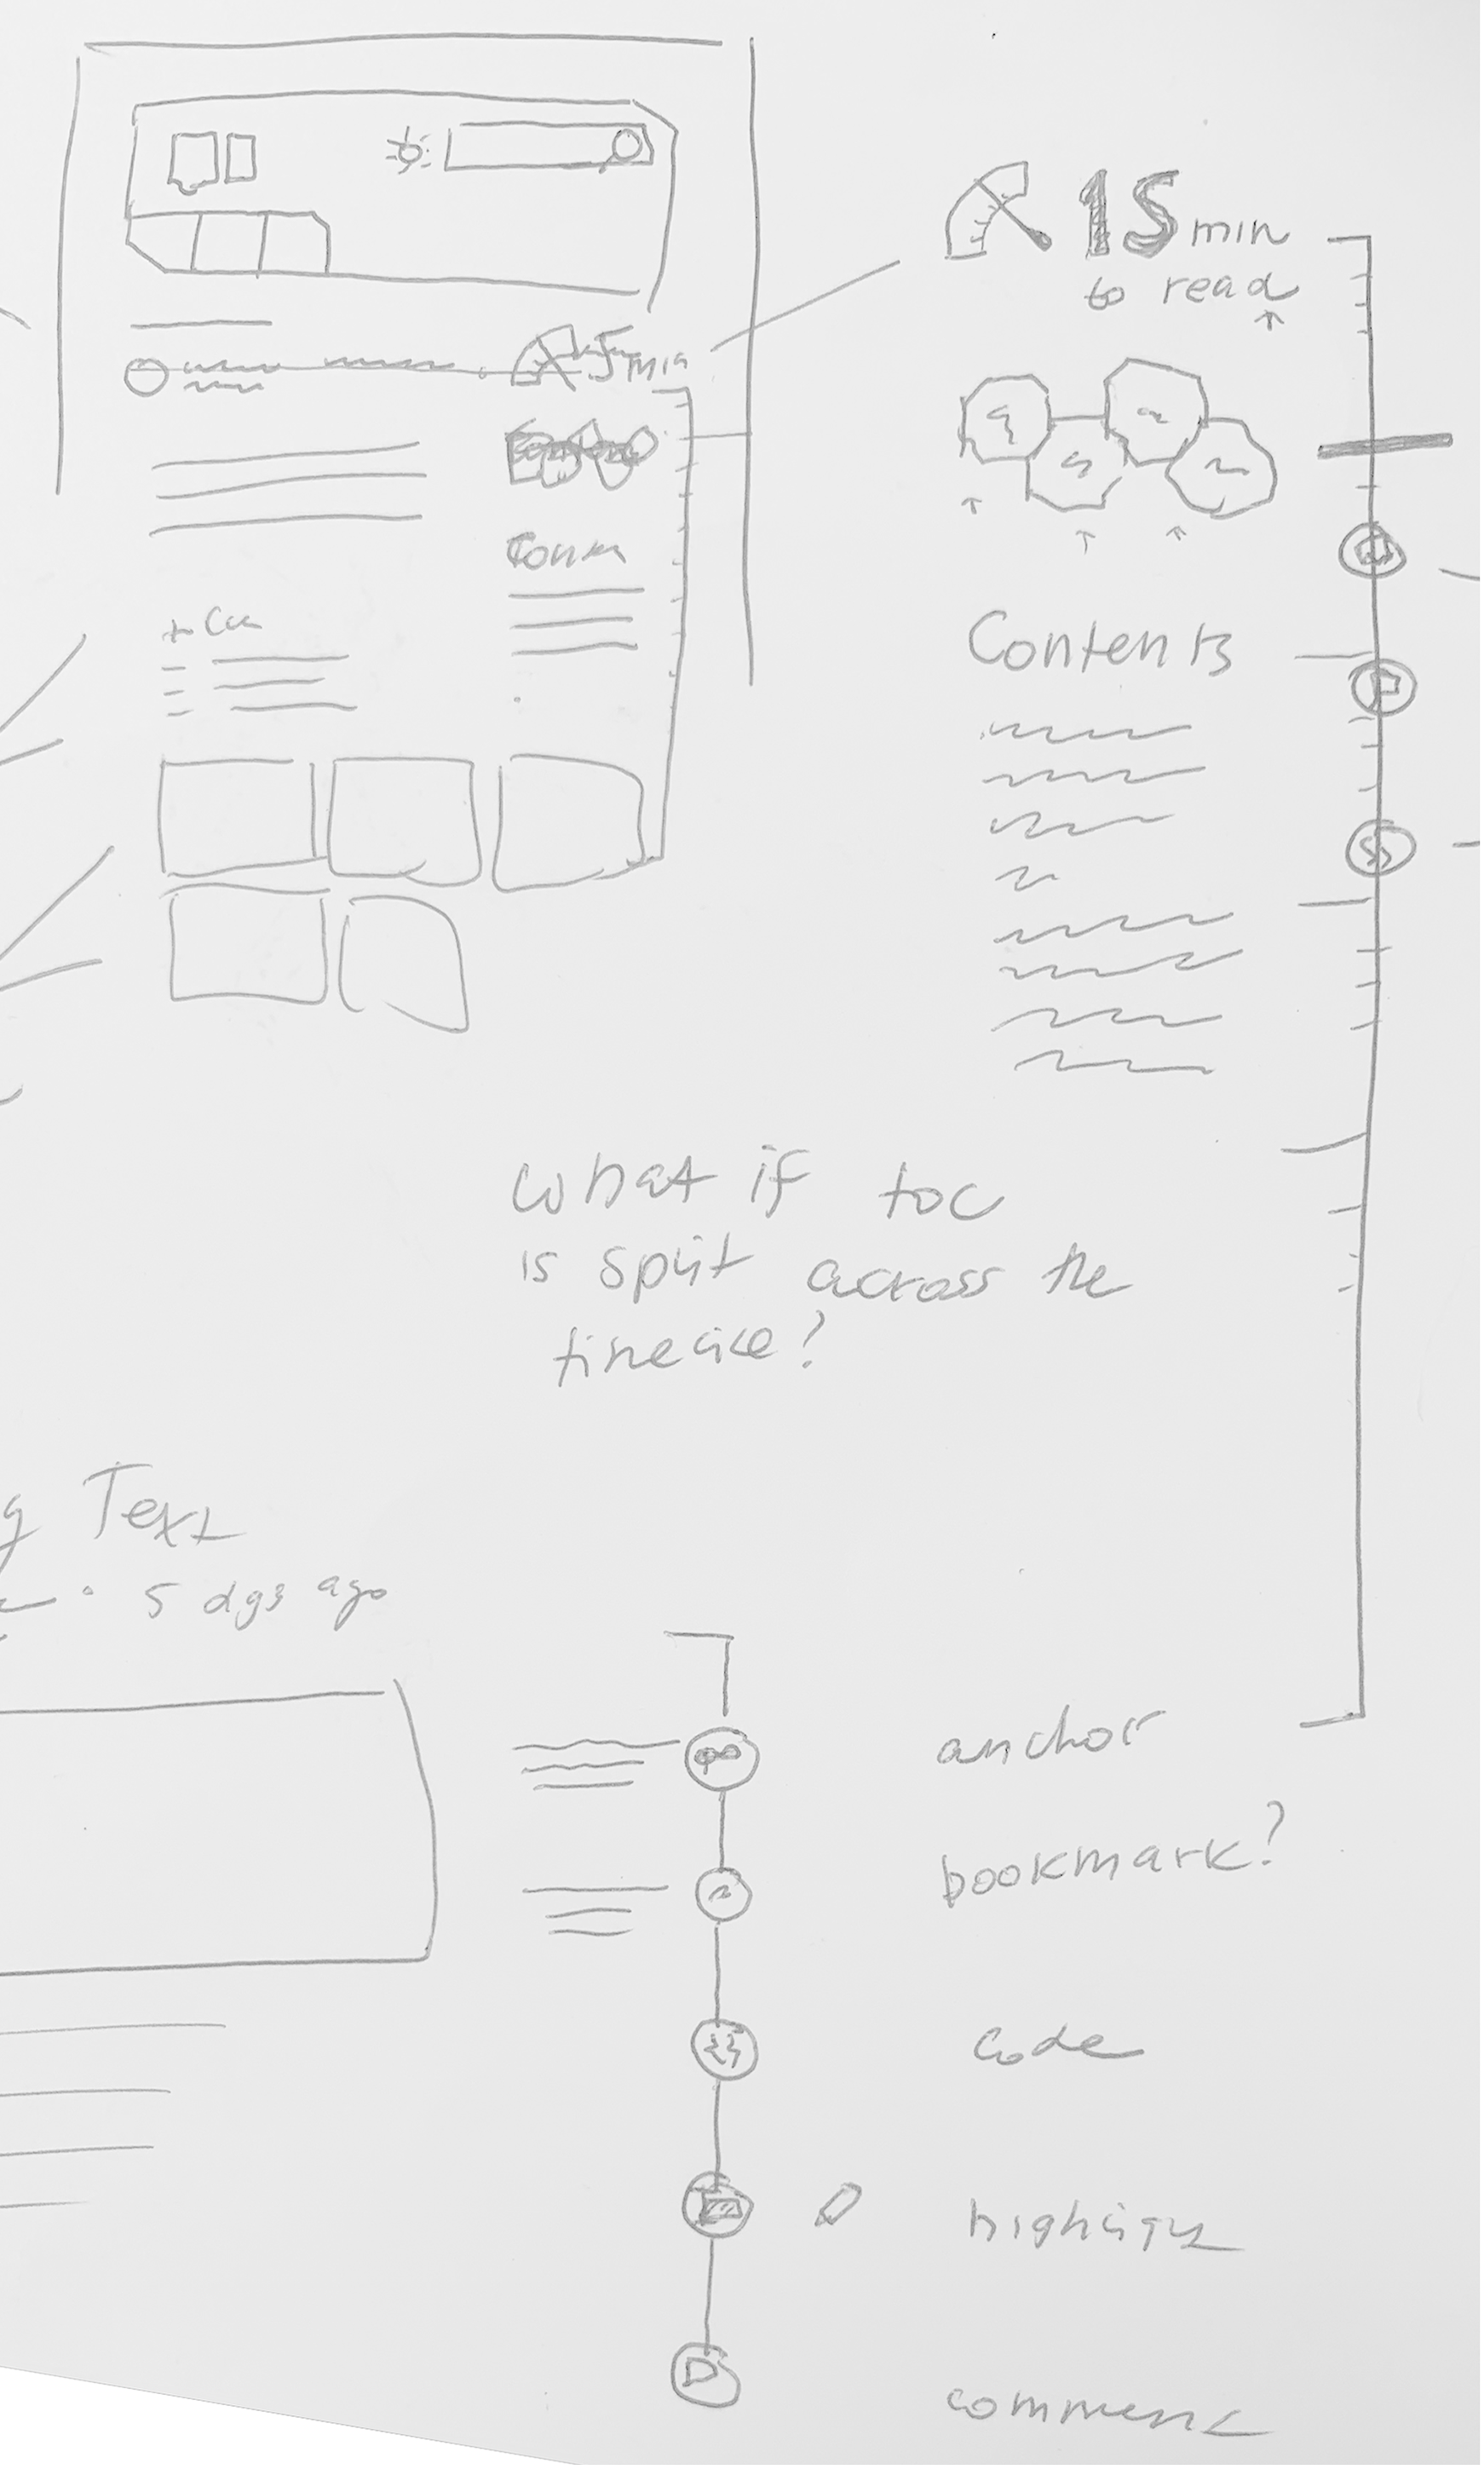 5 min
15 min
to read
Contents
What if toc
is split across the
timeline?
Text
5 days ago
anchor
bookmark?
code
highlight
comment